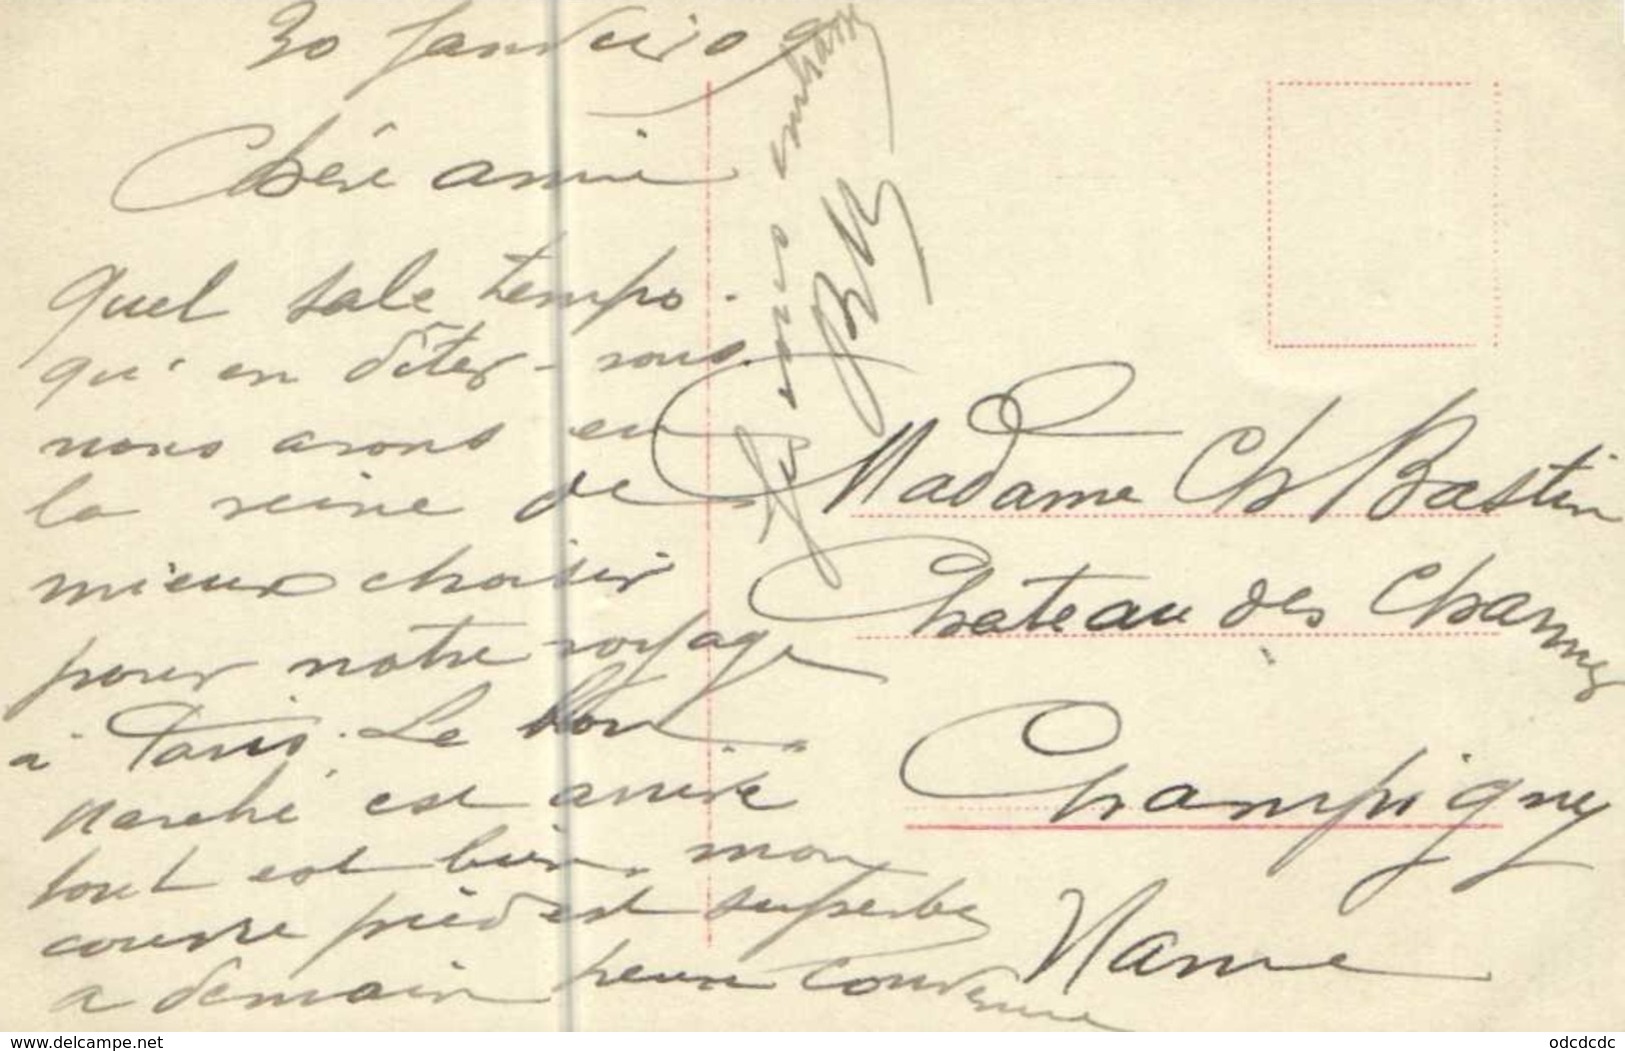 30 Janvier 09
Chère amie
quel sale temps.
qu'en dites-vous
nous avons eu
la veine de
mieux choisir
pour notre voyage
à Paris. Le bon
marché est arrivé
tout est bien. mon
couvre pied est superbe
a demain heure convenue
Je vous embrasse
Madame Ch Bastin
Chateau des Charmes
Champigny
Marne
www.delcampe.net
odcdcdc